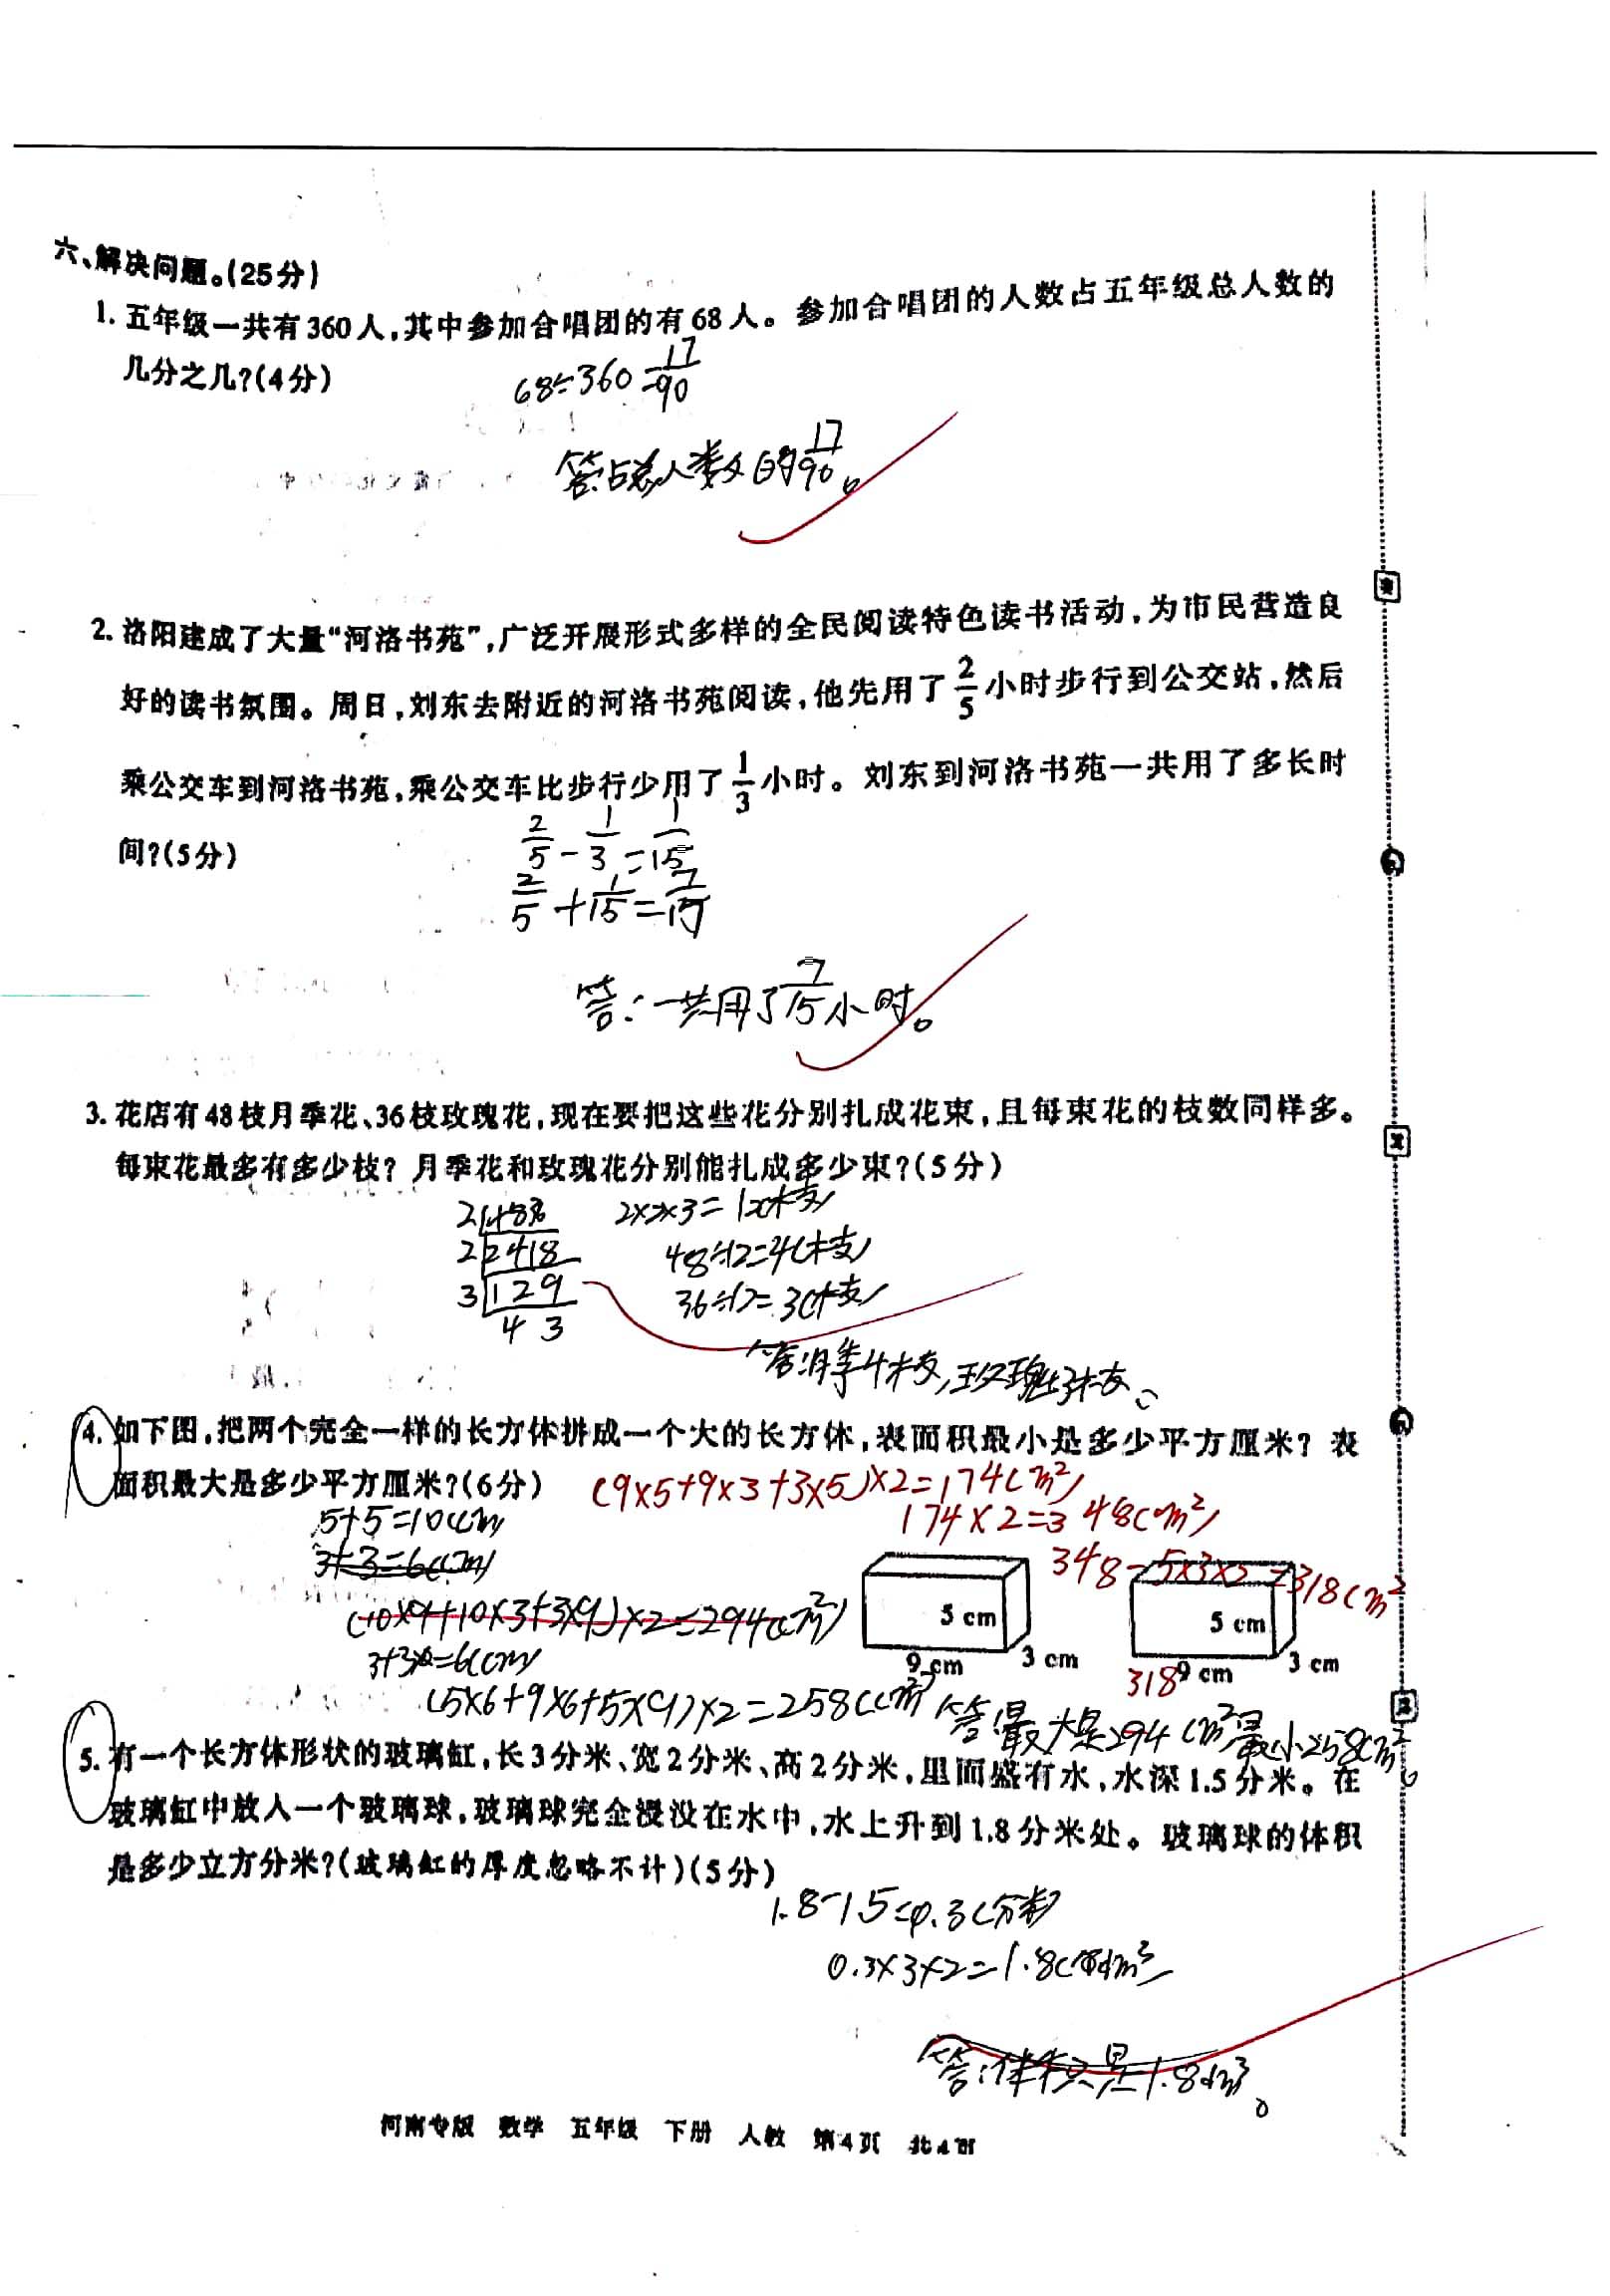 六、解决问题。(25分)
1. 五年级一共有360人,其中参加合唱团的有68人。参加合唱团的人数占五年级总人数的
几分之几?(4分)
68÷360=17/90
答:占总人数的17/90。
2. 洛阳建成了大量“河洛书苑”,广泛开展形式多样的全民阅读特色读书活动,为市民营造良
好的读书氛围。周日,刘东去附近的河洛书苑阅读,他先用了2/5小时步行到公交站,然后
乘公交车到河洛书苑,乘公交车比步行少用了1/3小时。刘东到河洛书苑一共用了多长时
间?(5分)
2/5-1/3=1/15
2/5+1/15=7/15
答:一共用了7/15小时。
3. 花店有48枝月季花、36枝玫瑰花,现在要把这些花分别扎成花束,且每束花的枝数同样多。
每束花最多有多少枝?月季花和玫瑰花分别能扎成多少束?(5分)
2 48 36
2×2×3=12(枝)
2 24 18
48÷12=4(枝)
3 12 9
36÷12=3(枝)
4 3
答:月季4枝,玫瑰3枝。
4. 如下图,把两个完全一样的长方体拼成一个大的长方体,表面积最小是多少平方厘米?表
面积最大是多少平方厘米?(6分)
(9×5+9×3+3×5)×2=174(m²)
5+5=10(cm)
174×2=348(cm²)
3+3=6(cm)
348-5×3×2=318(m²
(10×9+10×3+3×9)×2=294(cm²)
5 cm
5 cm
3+3=6(cm)
9 cm
3 cm
318
9 cm
3 cm
(5×6+9×6+5×9)×2=258(cm²)
答:最大是294cm²最小258cm²。
5. 有一个长方体形状的玻璃缸,长3分米、宽2分米、高2分米,里面盛有水,水深1.5分米。在
玻璃缸中放入一个玻璃球,玻璃球完全浸没在水中,水上升到1.8分米处。玻璃球的体积
是多少立方分米?(玻璃缸的厚度忽略不计)(5分)
1.8-1.5=0.3(分米)
0.3×3×2=1.8(dm³
答:体积是1.8dm³。
河南专版 数学 五年级 下册 人教 第4页 共4页